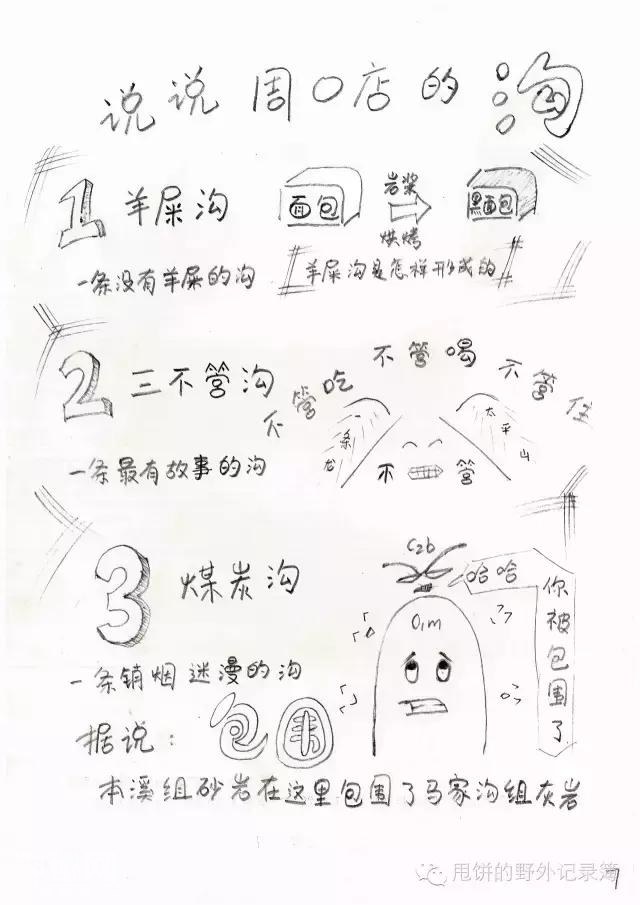 说说周口店的沟
1 羊屎沟
面包
岩浆
烘烤
黑面包
一条没有羊屎的沟
羊屎沟是怎样形成的
2 三不管沟
不管吃
不管喝
不管住
一条最有故事的沟
龙条
太平山
不管
3 煤炭沟
C2b
O1m
哈哈
你被包围了
一条销烟迷漫的沟
据说:包围
本溪组砂岩在这里包围了马家沟组灰岩
甩饼的野外记录簿
7